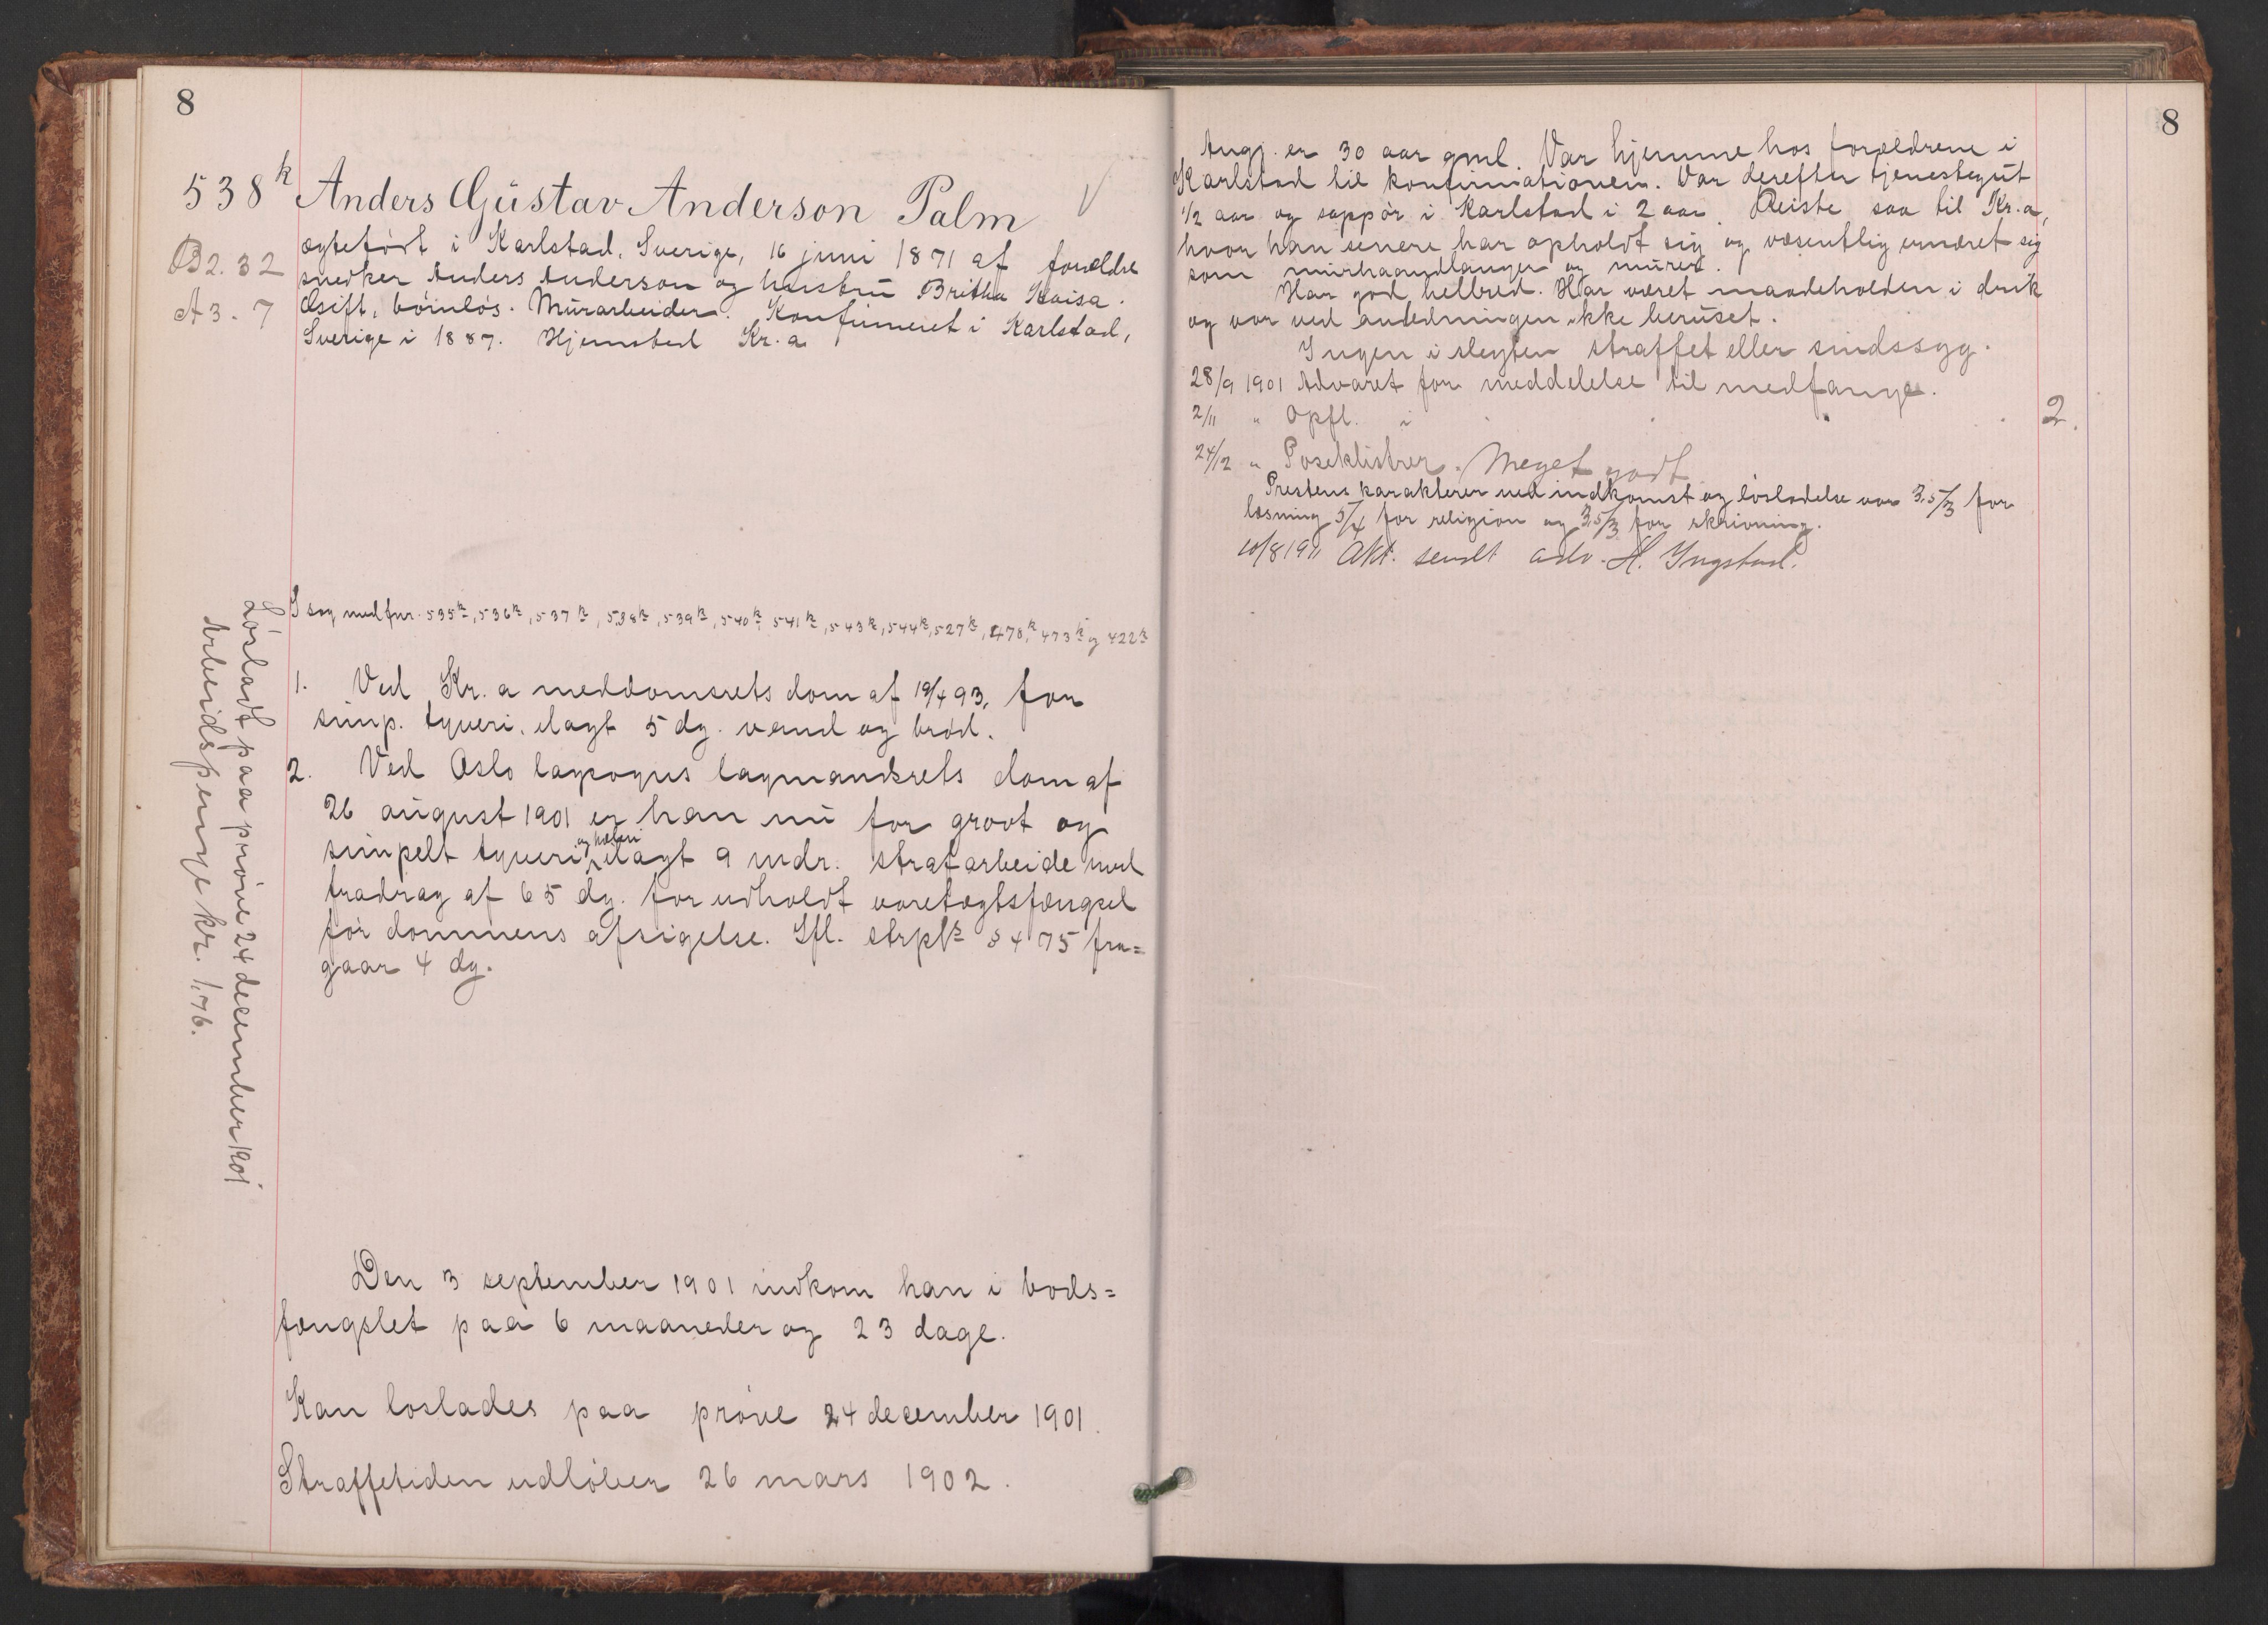 8
538k Anders Gustav Anderson Palm
B2. 32
A3. 7
ægtefødt i Karlstad, Sverige, 16 juni 1871 af forældre
snedker Anders Anderson og hustru Britha Kaisa.
Gift, børnløs. Murarbeider. Konfirmeret i Karlstad,
Sverige i 1887. Hjemsted Kr.a
I sag med fnr. 535k, 536k, 537k, 538k, 539k, 540k, 541k, 543k, 544k, 527k, 478k, 473k og 422k
1. Ved Kr.a meddomsrets dom af 19/4 93, for
simp. tyveri, ilagt 5 dg. vand og brød.
2. Ved Oslo lagsogns lagmandsrets dom af
26 august 1901 er han nu for grovt og
simpelt tyveri og hæleri ilagt 9 mdr. strafarbeide med
fradrag af 65 dg. for udholdt varetægtsfængsel
før dommens afsigelse. Ifl. strpl § 475 fra=
gaar 4 dg.
Løsladt paa prøve 24 december 1901
Arbeidspenge kr. 1,76.
Den 3 september 1901 indkom han i bods=
fængslet paa 6 maaneder og 23 dage.
Kan løslades paa prøve 24 december 1901.
Straffetiden udløber 26 mars 1902.
8
Angj. er 30 aar gml. Var hjemme hos forældrene i
Karlstad til konfirmationen. Var derefter tjenestegut
1/2 aar og sappør i Karlstad i 2 aar. Reiste saa til Kr.a,
hvor han senere har opholdt sig og væsentlig ernæret sig
som murhaandlanger og murer.
Har god helbred. Har været maadeholden i druk
og var ved anledningen ikke beruset.
Ingen i slegten straffet eller sindssyg.
28/9 1901 Advaret for meddelelse til medfange.
2/11 " Opfl. i 2.
24/12 " Poseklistrer. Meget godt
Prestens karakterer ved indkomst og løsladelse var 3,5/3 for
læsning 5/4 for religion og 3,5/3 for skrivning.
10/8 1911 Akt. sendt adv. H. Ingstad.